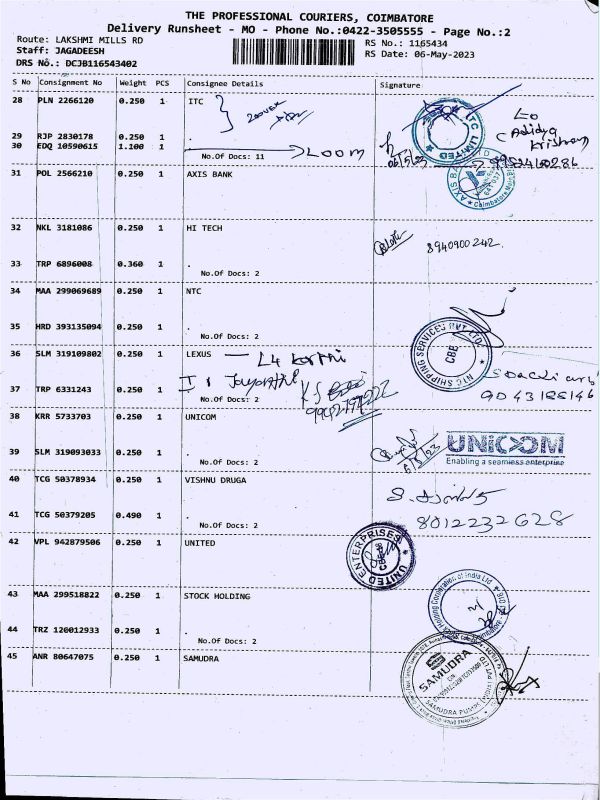 THE PROFESSIONAL COURIERS, COIMBATORE
Delivery Runsheet - MO - Phone No.:0422-3505555 - Page No.:2
Route: LAKSHMI MILLS RD
RS No.: 1165434
Staff: JAGADEESH
RS Date: 06-May-2023
DRS No.: DCJB116543402
S No Consignment No Weight PCS Consignee Details Signature
28 PLN 2266120 0.250 1 ITC
29 RJP 2830178 0.250 1 .
30 EDQ 10590615 1.100 1
No.Of Docs: 11
LOOM
ITC LIMITED
31 POL 2566210 0.250 1 AXIS BANK
AXIS BANK
Coimbatore
32 NKL 3181086 0.250 1 HI TECH
8940900242
33 TRP 6896008 0.360 1 .
No.Of Docs: 2
34 MAA 299069689 0.250 1 NTC
35 HRD 393135094 0.250 1 .
No.Of Docs: 2
NTC SHIPPING SERVICES PVT LTD
CBE
36 SLM 319109802 0.250 1 LEXUS
37 TRP 6331243 0.250 1
No.Of Docs: 2
38 KRR 5733703 0.250 1 UNICOM
6/5/23
UNICOM
Enabling a seamless enterprise
39 SLM 319093033 0.250 1 .
No.Of Docs: 2
40 TCG 50378934 0.250 1 VISHNU DRUGA
41 TCG 50379205 0.490 1 .
8012232628
No.Of Docs: 2
42 VPL 942879506 0.250 1 UNITED
UNITED ENTERPRISES
43 MAA 299518822 0.250 1 STOCK HOLDING
Holding Corporation of India Ltd
44 TRZ 120012933 0.250 1 .
No.Of Docs: 2
45 ANR 80647075 0.250 1 SAMUDRA
SAMUDRA